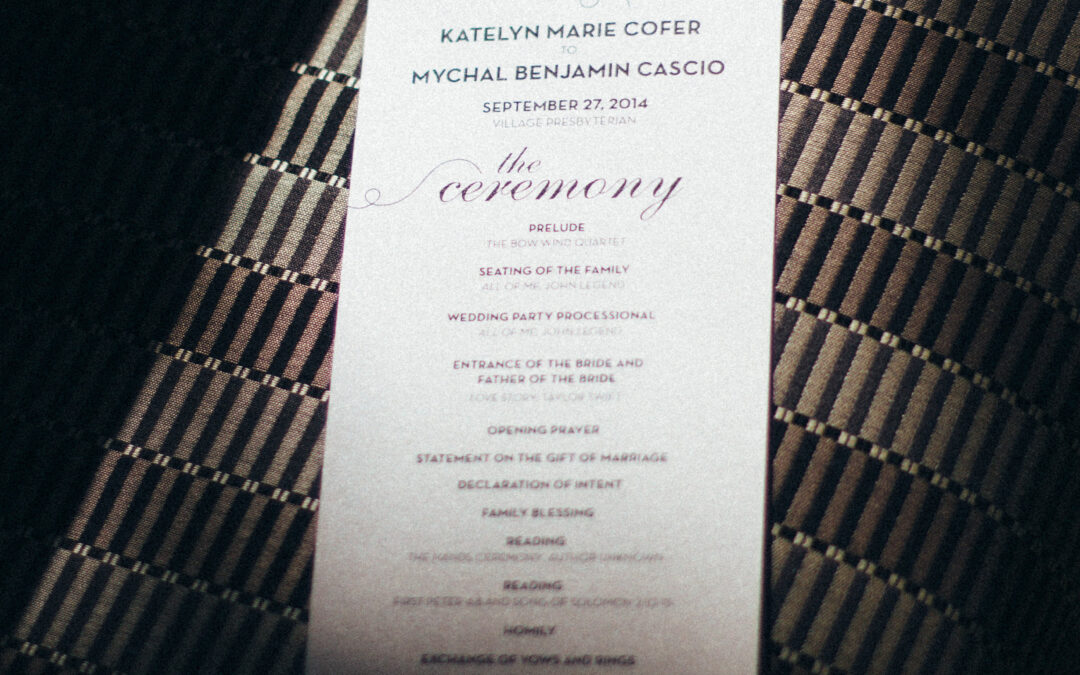 KATELYN MARIE COFER
TO
MYCHAL BENJAMIN CASCIO
SEPTEMBER 27, 2014
VILLAGE PRESBYTERIAN
the
ceremony
PRELUDE
THE BOW WIND QUARTET
SEATING OF THE FAMILY
ALL OF ME, JOHN LEGEND
WEDDING PARTY PROCESSIONAL
ALL OF ME, JOHN LEGEND
ENTRANCE OF THE BRIDE AND
FATHER OF THE BRIDE
LOVE STORY, TAYLOR SWIFT
OPENING PRAYER
STATEMENT ON THE GIFT OF MARRIAGE
DECLARATION OF INTENT
FAMILY BLESSING
READING
THE HANDS CEREMONY, AUTHOR UNKNOWN
READING
FIRST PETER 4:8 AND SONG OF SOLOMON
HOMILY
EXCHANGE OF VOWS AND RINGS